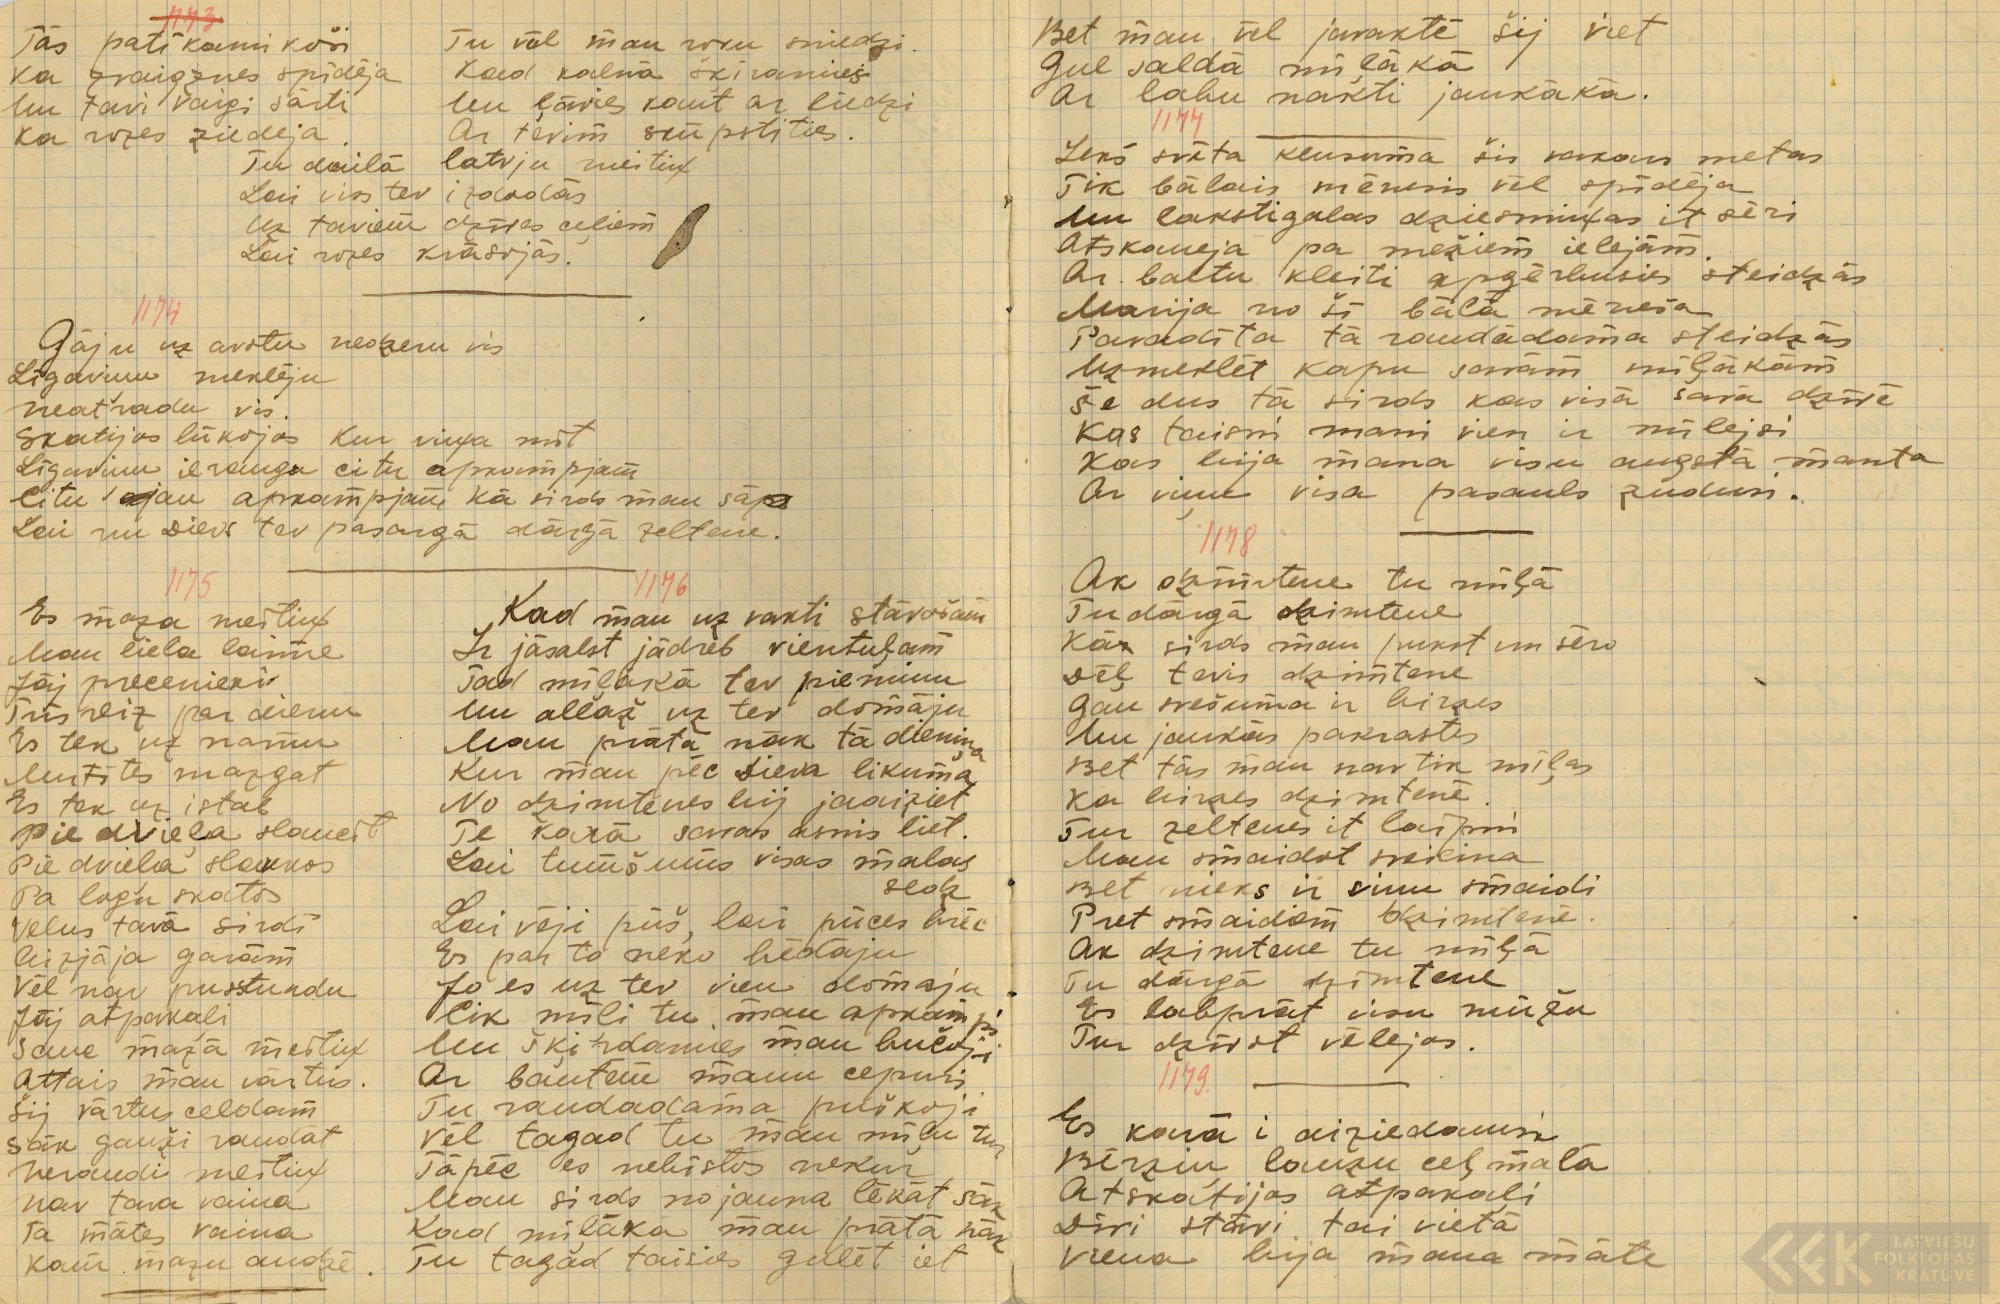 1173
Tās patīkami koši
Ka zvaigznes spīdēja
Un tavi vaigi sārti
Ka rozes ziedēja.
Tu vēl man roku sniedzi.
Kad kalnā šķiramies
Un ļāvies kaut ar liedzi
Ar tēvim skūpstīties.
Tu dailā latvju meitiņ
Lai viss tev izdodās
Uz taviem dzīves ceļiem
Lai rozes krāsojās.
1174
Gāju uz avotu nedzeru vis
Līgaviņu meklēju
neatradu vis.
Skatijos lūkojos kur viņa mīt
Līgaviņu ieraugu citu apkampjam
Citu jau apkampjam kā sirds man sāp
Lai nu Dievs tev pasargā dārgā zeltene.
1175
Es maza meitiņ
Man liela laime
Jāj precenieki
Trīsreiz par dienu
Es tek uz namu
Mutītes mazgat
Es tek uz istab
Pie dvieļa slaucīt
Pie dvieļa slaukos
Pa logu skatos
Velns tavā sirdī
Aizjāja garām
Vēl nav pusstundu
Jāj atpakaļi
Sauc mazā meitiņ
Attais man vārtus.
Šij vārtus celdam
Sāk gauži raudāt
Neraudi meitiņ
Nav tava vaina
Ta mātes vaina
Kam mazu audzē.
1176
Kad man uz vakti stāvošam
Ir jāsalst jādreb vientuļam
Tad mīļākā tev pieminu
Un allaž uz tev domāju
Man prātā nāk tā dieniņa
Kur man pēc Dieva likuma
No dzimtenes bij jaaiziet
Te karā savas asnis liet.
Lai tumšums visas malas
sedz
Lai vēji pūš, lai pūces brēc
Es par to neko bēdaju
Jo es uz tev vien domaju
Cik mīli tu man apkampji
Un šķirdamies man bučoji
Ar bantēm manu cepuri
Tu raudadama puškoji
Vēl tagad tu man mīļu tur
Tāpēc es nebīstos nekur
Man sirds no jauna lēkāt sāk
Kad mīļāka man prātā nāk
Tu tagad taisies gulēt iet
Bet man vēl javaktē šij viet
Gul saldā mīļākā
Ar labu nakti jaukākā.
1177
Ieks svēta klusuma šis vakars metas
Tik bālais mēness vēl spīdēja
Un lakstigalas dziesmiņas it sēri
Atskaneja pa mežiem ielejām.
Ar baltu kleiti apģērbusies steidzās
Marija no šī bālā mēneša
Pavadīta tā raudādama steidzās
Uzmeklēt kapu savam mīļākām
Še dus tā sirds kas visā savā dzīvē
Kas taisni mani vien ir mīlejsi
Kas bija mana visu augstā manta
Ar viņu visa pasauls zudusi.
1178
Ak dzimtene tu mīļā
Tu dārgā dzimtene
Kā sirds man pukst un sēro
Dēļ tevis dzimtene
Gan svešuma ir birzes
Un jaukās pakrastes
Bet tās man nav tik mīļas
Ka birzes dzimtenē.
Tur zeltenes it laipni
Man smaidot sveicina
Bet nieks ir viņu smaidi
Pret smaidiem dzimtenē.
Ak dzimtene tu mīļā
Tu dārgā dzimtene
Es labprāt visu mūžu
Tur dzīvot vēlejos.
1179.
Es karā i aiziedamis
Bērziņ lauzu ceļmalā
Atskatijos atpakaļi
Divi stāvi tai vietā
Viena bija mana māte
LATVIEŠU
FOLKLORAS
KRĀTUVE